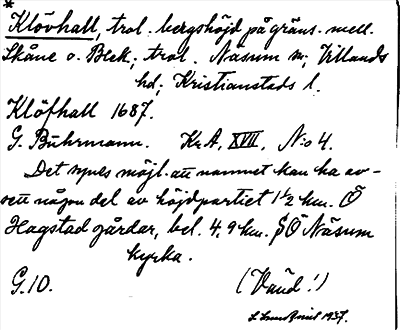 *
Klövhall, trol. bergshöjd på gräns. mell.
Skåne o. Blek; trol. Näsum sn; Villands
hd; Kristianstads l.
Klöfhall 1687.
G. Buhrmann. Kr.A, XVII, N:o 4.
Det synes möjl. att namnet kan ha av-
sett någon del av höjdpartiet 1½ km. Ö
Hagstad gårdar, bel. 4,9 km. SÖ Näsum
kyrka.
G.10. (Vänd!)
1937.